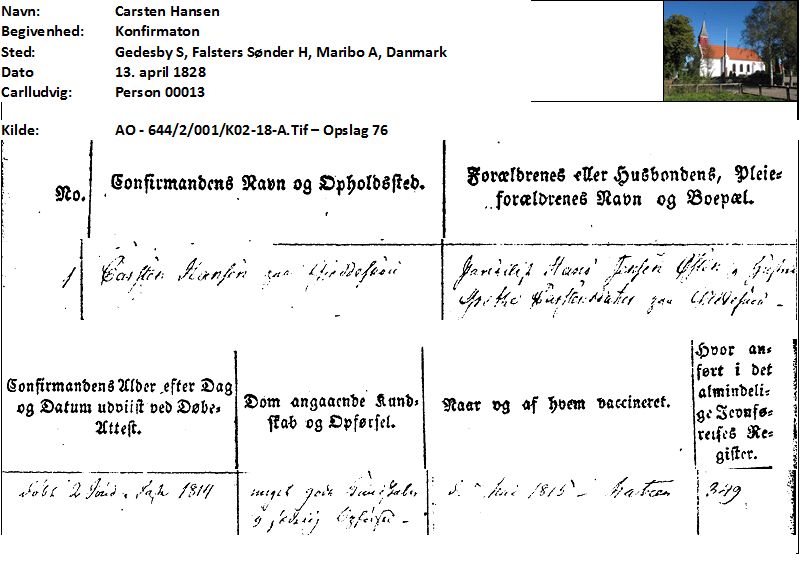 Navn: Carsten Hansen
Begivenhed: Konfirmaton
Sted: Gedesby S, Falsters Sønder H, Maribo A, Danmark
Dato 13. april 1828
Carlludvig: Person 00013
Kilde: AO - 644/2/001/K02-18-A.Tif – Opslag 76
No.
Confirmandens Navn og Opholdssted.
Forældrenes eller Husbondens, Pleie-
forældrenes Navn og Boepæl.
1
Carsten Hansen paa
Hans Jensen
paa
Confirmandens Alder efter Dag
og Datum udviist ved Døbe-
Attest.
Dom angaaende Kund-
skab og Opførsel.
Naar og af hvem vaccineret.
Hvor an-
ført i det
almindeli-
ge Jevnfø-
relses Re-
gister.
døbt 2 1814
meget gode Kundskaber
og
1815
349